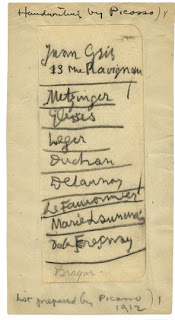 Handwriting by Picasso )
Juan Gris
13 rue Ravignan
Metzinger
Gleises
Leger
Duchan
Delaunay
Le Fauconnier
Marie Laurencin
De la Fresnay
Braque
List prepared by Picasso ) !
1912